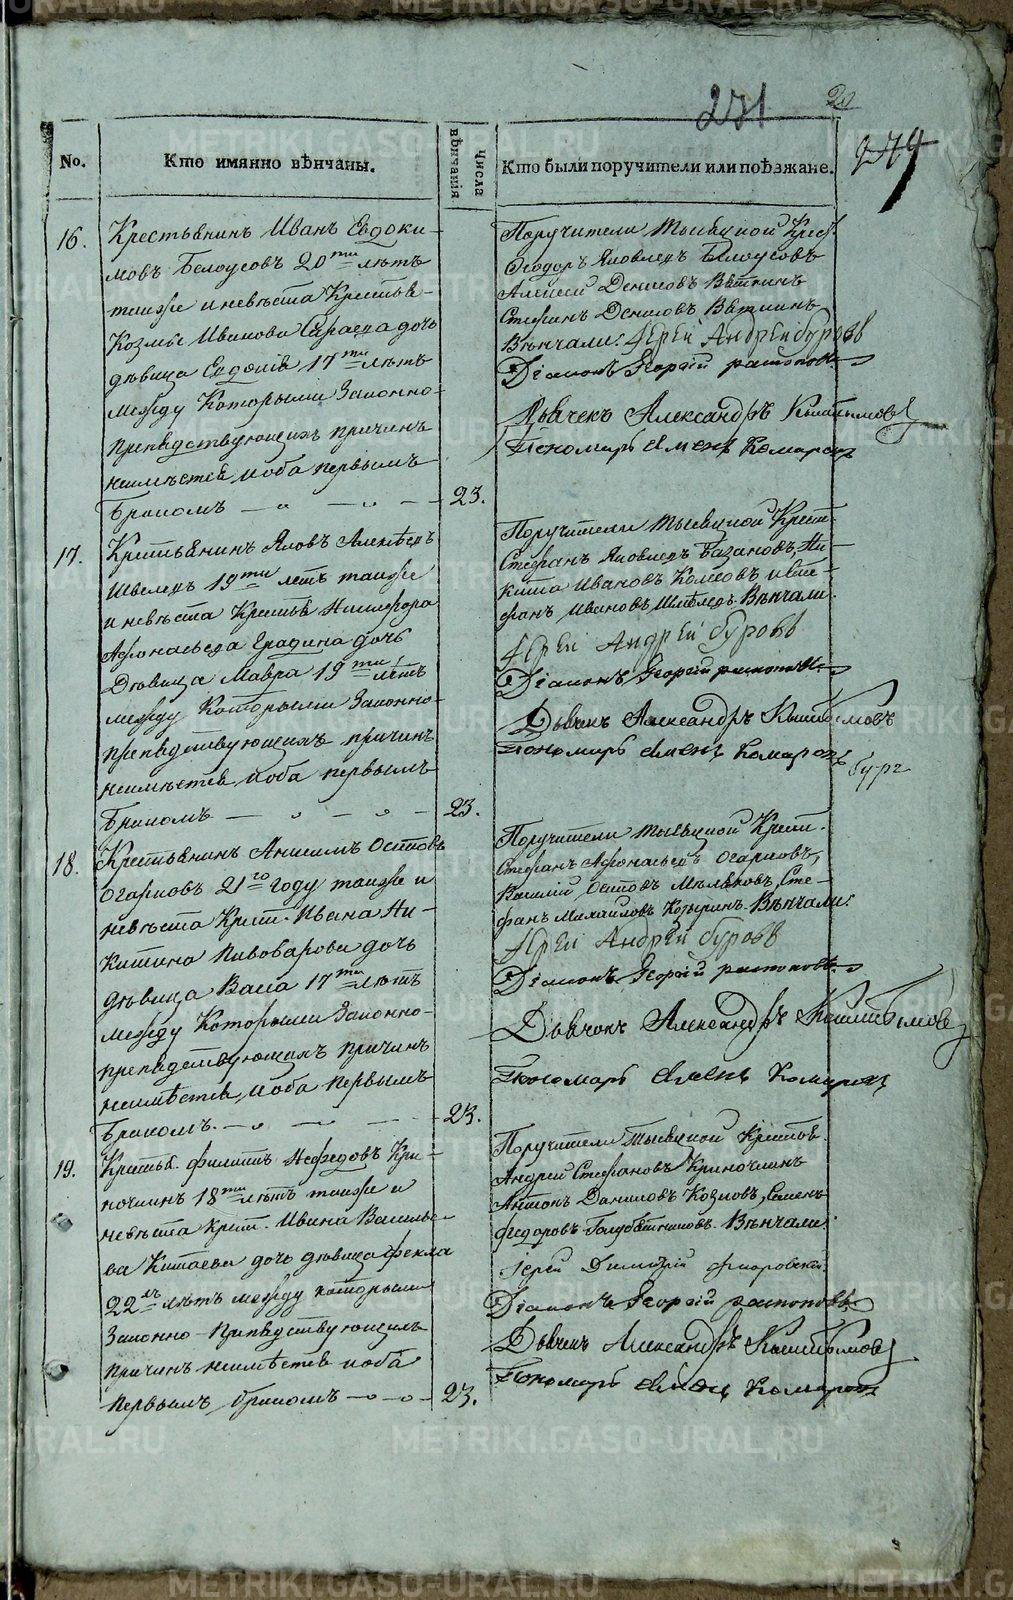 231
20
274
No.
Кто имянно вѣнчаны.
Числа вѣнчанія
Кто были поручители или поѣзжане.
16.
Крестьянинъ Иванъ Евдоки-
мовъ Белоусовъ 20ти лѣтъ
такоже и невѣста Крестья-
Козмы Иванова Сараева дочь
дѣвица Евдокія 17ти лѣтъ
между Которыми Законно-
препядствующихъ причинъ
неимѣется, и оба первымъ
Бракомъ
23.
Поручители Крест.
Ѳеодоръ Яковлевъ Белоусовъ
Алексей Денисовъ Вяткинъ
Стефанъ Денисовъ Вяткинъ
Вѣнчали: Іерей Андрей Буровъ
Діаконъ Георгій
Дьячекъ Александръ
Пономарь Комаровъ
17.
Крестьянинъ Яковъ Алексѣевъ
Швелевъ 19ти летъ такоже
и невѣста Крестья Никифора
Афонасьева дочь
Дѣвица Мавра 19ти лѣтъ
между Которыми Законно-
препядствующихъ причинъ
неимѣется, и оба первымъ
Бракомъ
23.
Поручители Крест.
Стефанъ Яковлевъ Базановъ, Ни-
кита Ивановъ и Сте-
фанъ Ивановъ Вѣнчали:
Іерей Андрей Буровъ
Діаконъ Георгій
Дьячекъ Александръ
Пономарь Комаровъ
18.
Крестьянинъ Анисимъ Осиповъ
Огарковъ 21го году такоже и
невѣста Крест. Ивана Ни-
китина Пивоварова дочь
дѣвица Васа 17ти лѣтъ
между Которыми Законно-
препядствующихъ причинъ
неимѣется, и оба первымъ
Бракомъ.
23.
Поручители Крест.
Стефанъ Афонасьевъ Огарковъ,
Василій Осиповъ Сте-
фанъ Михайловъ Козыринъ. Вѣнчали:
Іерей Андрей Буровъ
Діаконъ Георгій
Дьячокъ Александръ
Пономарь Комаровъ
19.
Крестья. Филипъ Нефедовъ Кри-
ночкинъ 18ти лѣтъ такоже и
невѣста Крест. Ивана Василье-
ва Китаева дочь дѣвица Фекла
22хъ лѣтъ между которыми
Законно препядствующихъ
причинъ неимѣется и оба
первымъ бракомъ
23.
Поручители Крестья.
Андрей Стефановъ Криночкинъ
Антонъ Даниловъ Козловъ, Семенъ
Федоровъ Вѣнчали:
Іерей Димитрій
Діаконъ Георгій
Дьячекъ Александръ
Пономарь Комаровъ
METRIKI.GASO-URAL.RU